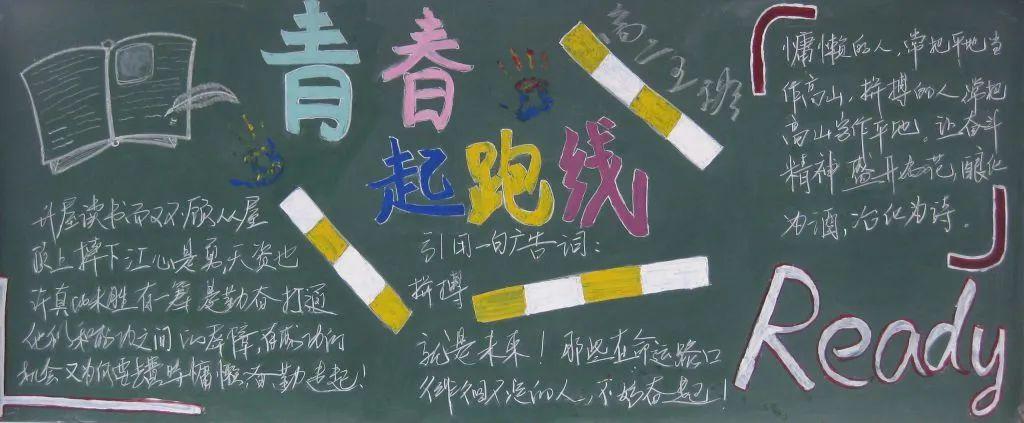 青春
起跑线
高二五班
慵懒的人,常把平地当
作高山,拼搏的人常把
高山当作平地。让奋斗
精神盛开为花,酿化
为酒,冶化为诗.
读书而又不顾从屋
上摔下
许真的 胜有一筹 是勤奋 打通
之间的屏障,有成功的
机会又为何要 慵懒 奋勤走起!
引用一句广告词:
拼搏
就是未来!那些在命运路口
徘徊不定的人,不妨奋起!
Ready